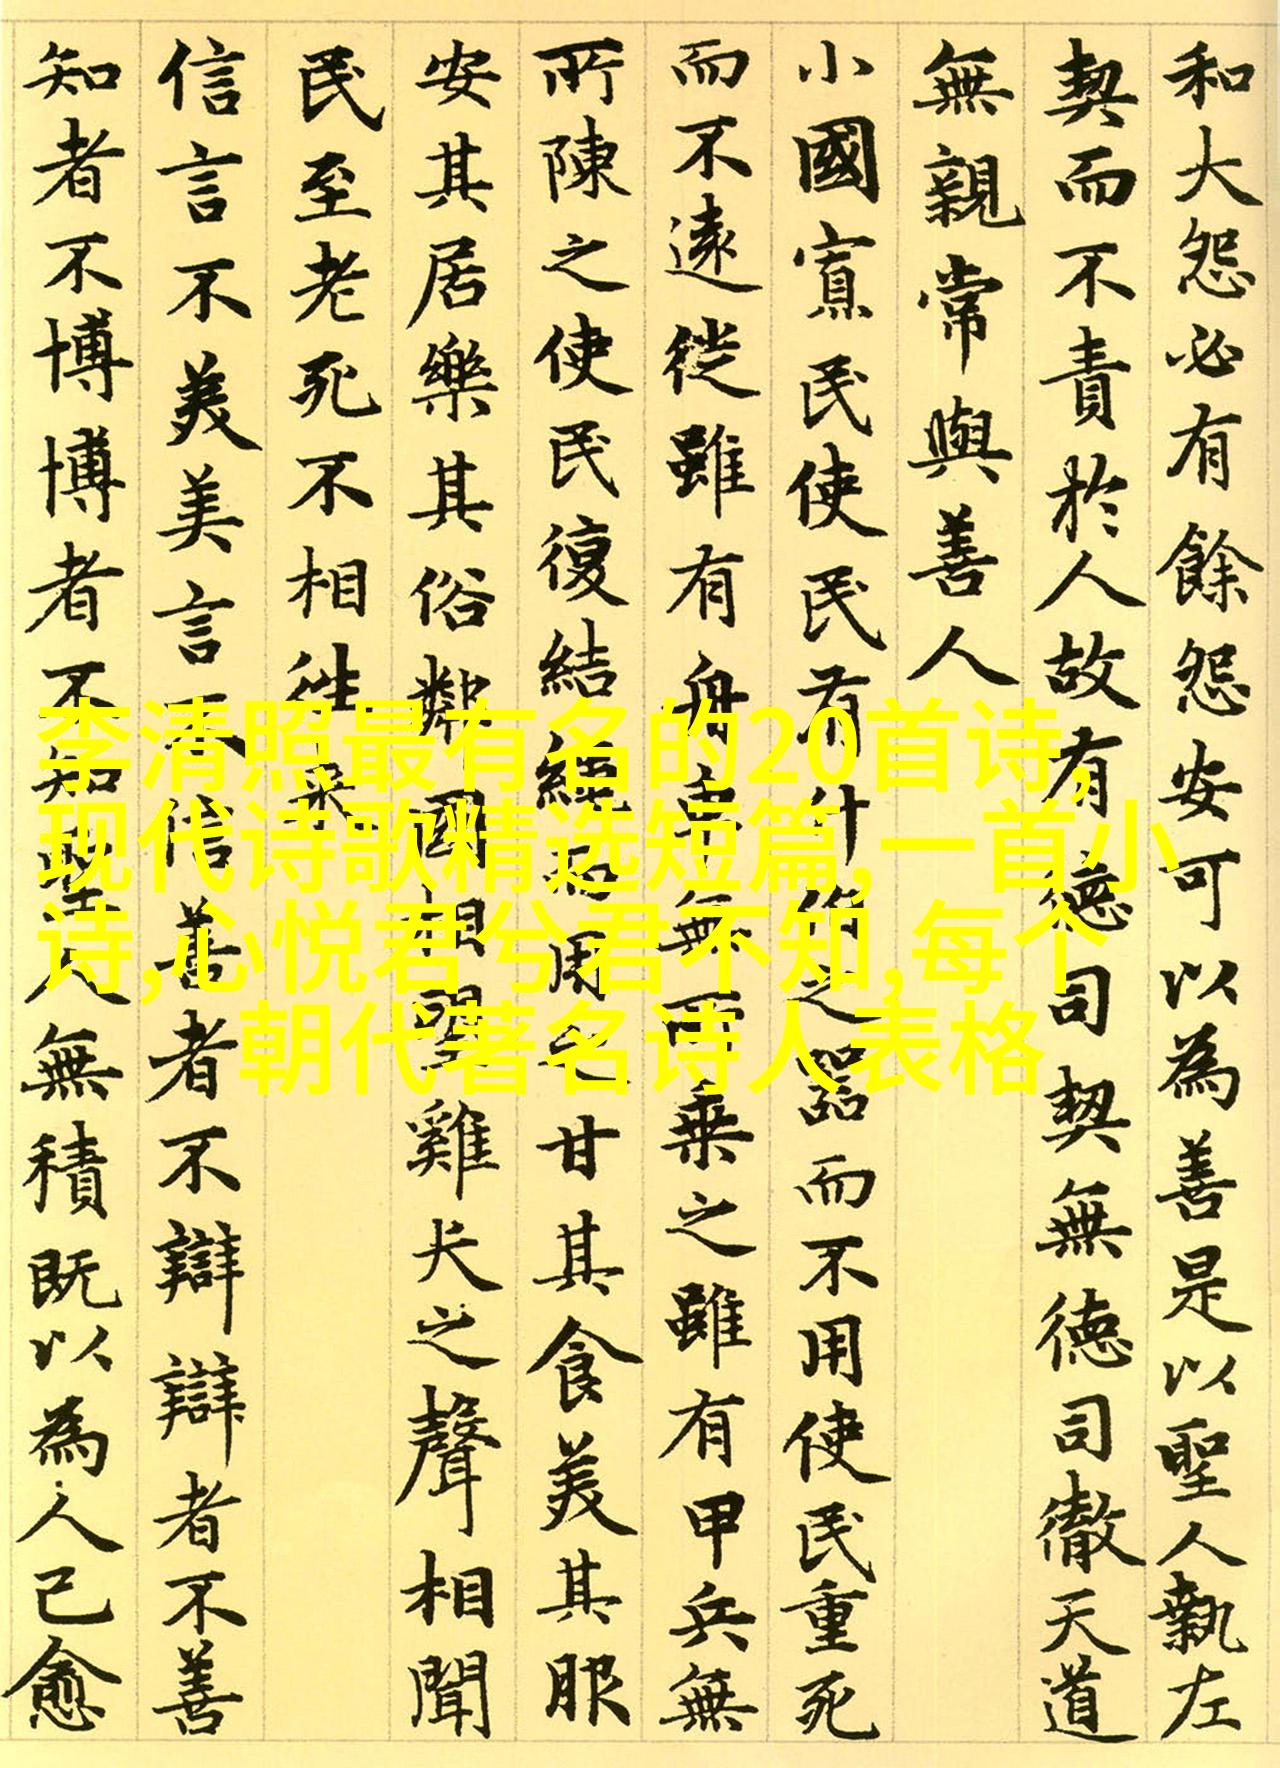 和大怨必有餘怨安可以為善是以聖人執左
契而不責於人故有德司契無德司徹天道
無親常與善人
小國寡民使民有什佰之器而不用使民重死
而不遠徙雖有舟車無所乗之雖有甲兵無
所陳之使民復結繩而用之甘其食美其服
安其居樂其俗鄰國相望雞犬之聲相聞
民至老死不相往来
信言不美美言不信善者不辯辯者不善
知者不博博者不知聖人無積既以為人己愈
李清照最有名的20首诗,
现代诗歌精选短篇,一首小
诗,心悦君兮君不知,每个
朝代著名诗人表格